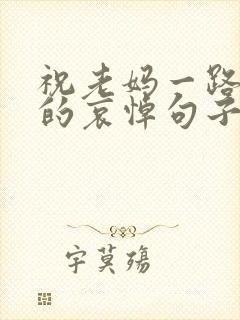 祝老妈一路
的哀悼句子
字莫殇